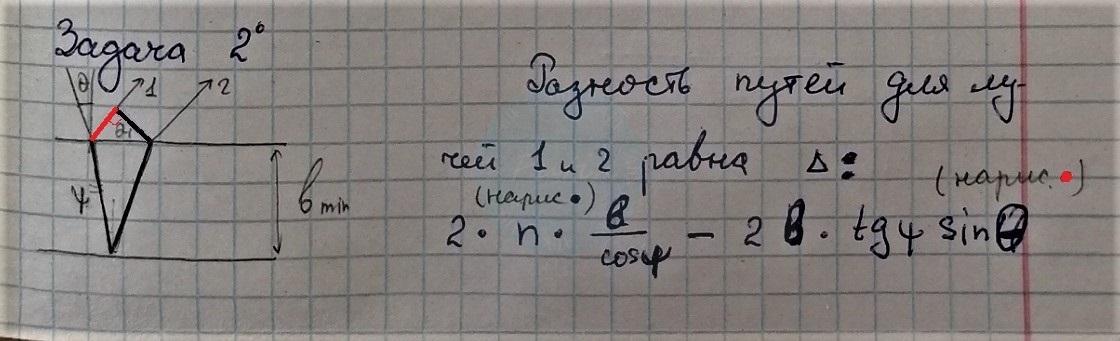 Задача 2°
θ 1 2
θ
ψ
b min
Разность путей для лу-
чей 1 и 2 равна Δ:
(нарис •) (нарис. •)
2 · n · b/cosψ − 2b · tgψ sinθ